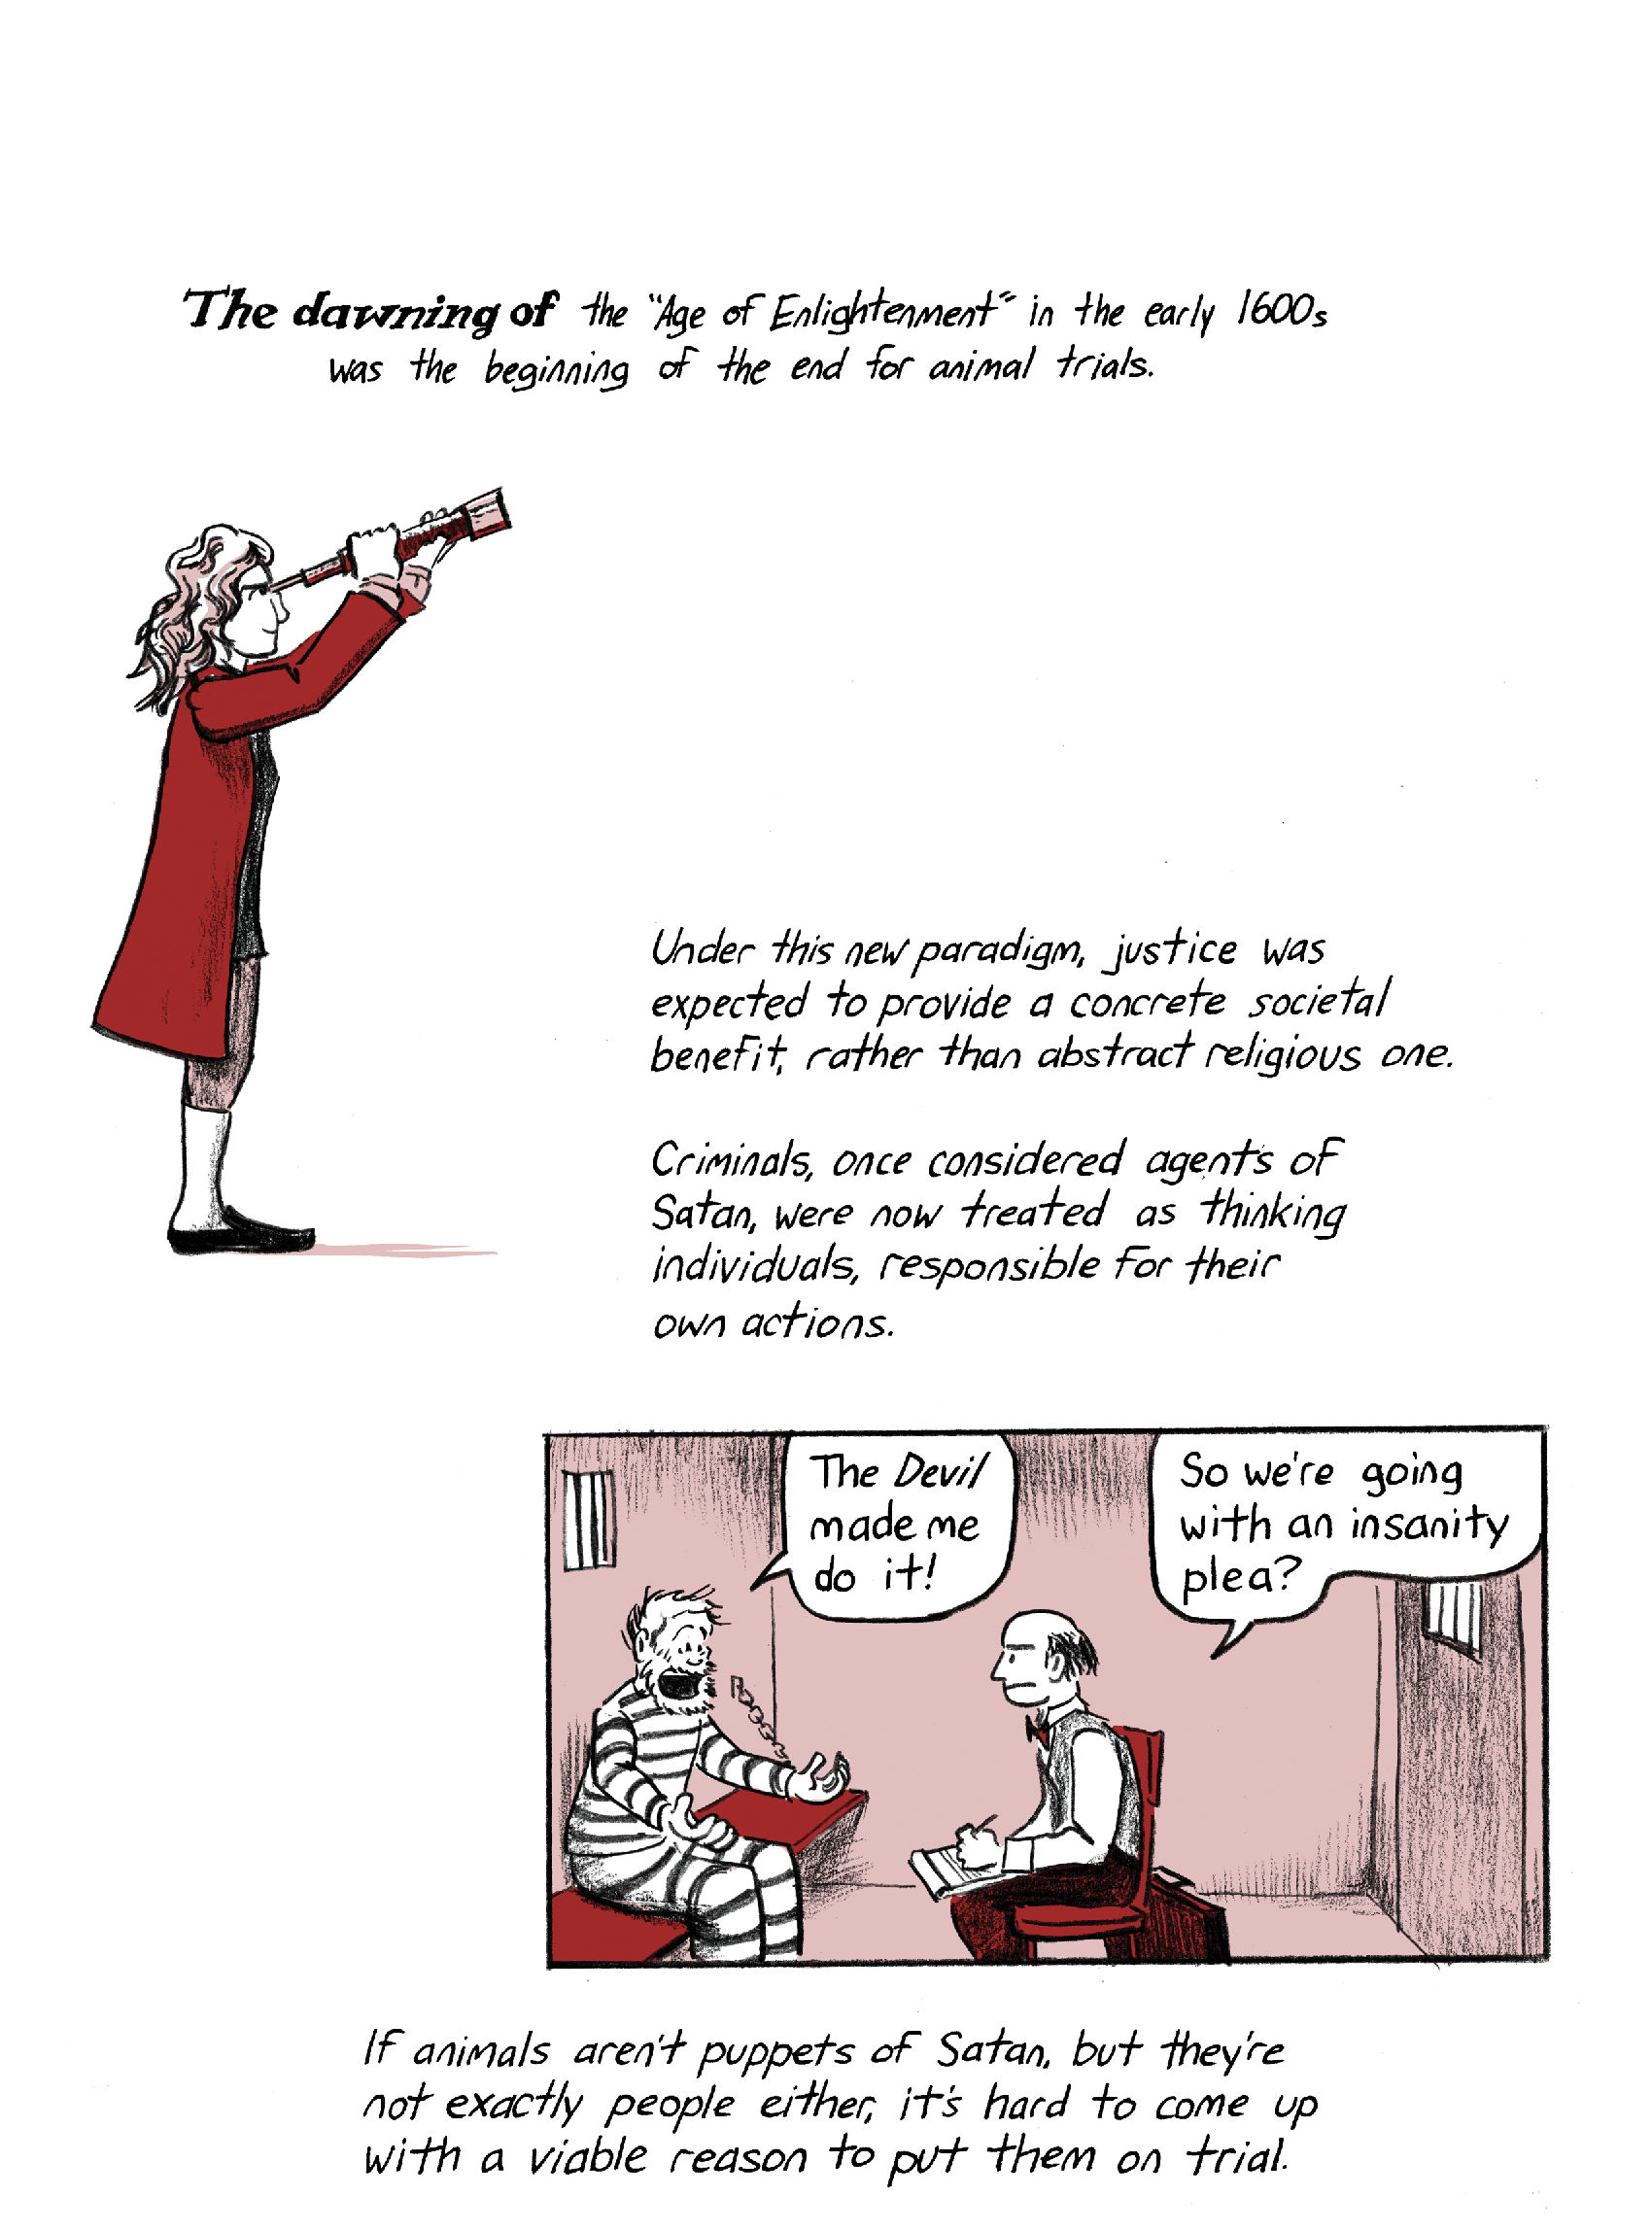 The dawning of the "Age of Enlightenment" in the early 1600s
was the beginning of the end for animal trials.
Under this new paradigm, justice was
expected to provide a concrete societal
benefit, rather than abstract religious one.
Criminals, once considered agents of
Satan, were now treated as thinking
individuals, responsible for their
own actions.
The Devil
made me
do it!
So we're going
with an insanity
plea?
If animals aren't puppets of Satan, but they're
not exactly people either, it's hard to come up
with a viable reason to put them on trial.